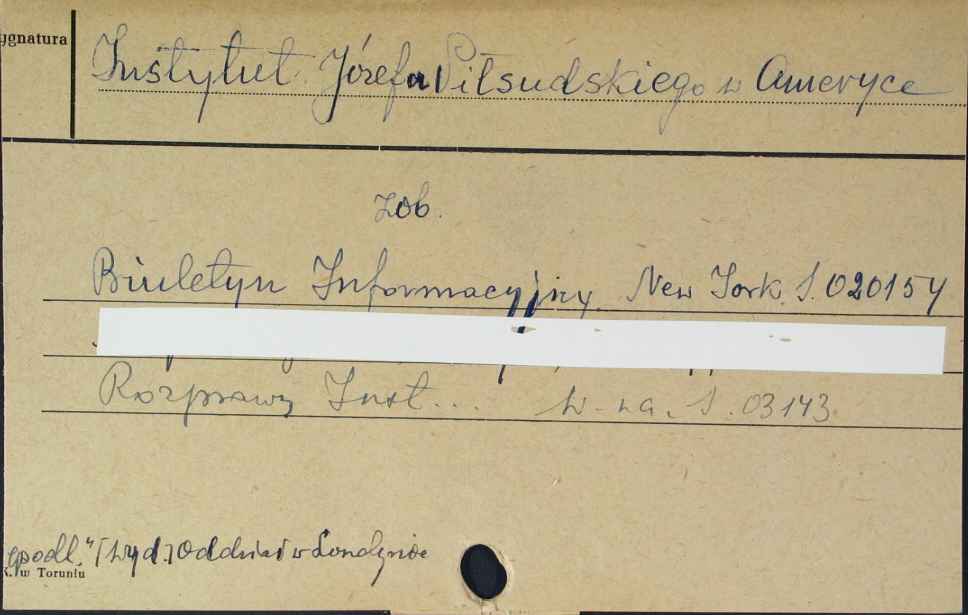 ygnatura
Instytut Józefa Piłsudskiego w Ameryce
zob.
Biuletyn Informacyjny. New York. S. 020154
Rozprawy Inst... W-wa. S. 03143.
[wyd.] Oddział w Londynie
K. w Toruniu